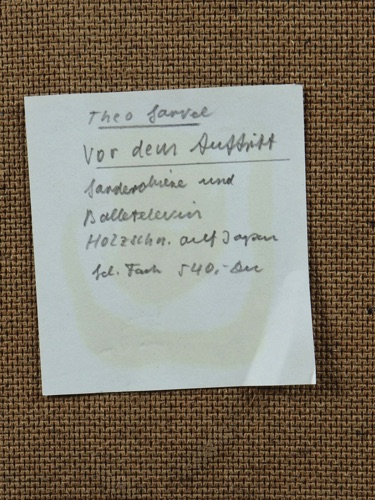 Theo Garvel
Vor dem Auftritt
Garderobiere und
Balletelevin
Holzschn. auf Japan
540,- DM